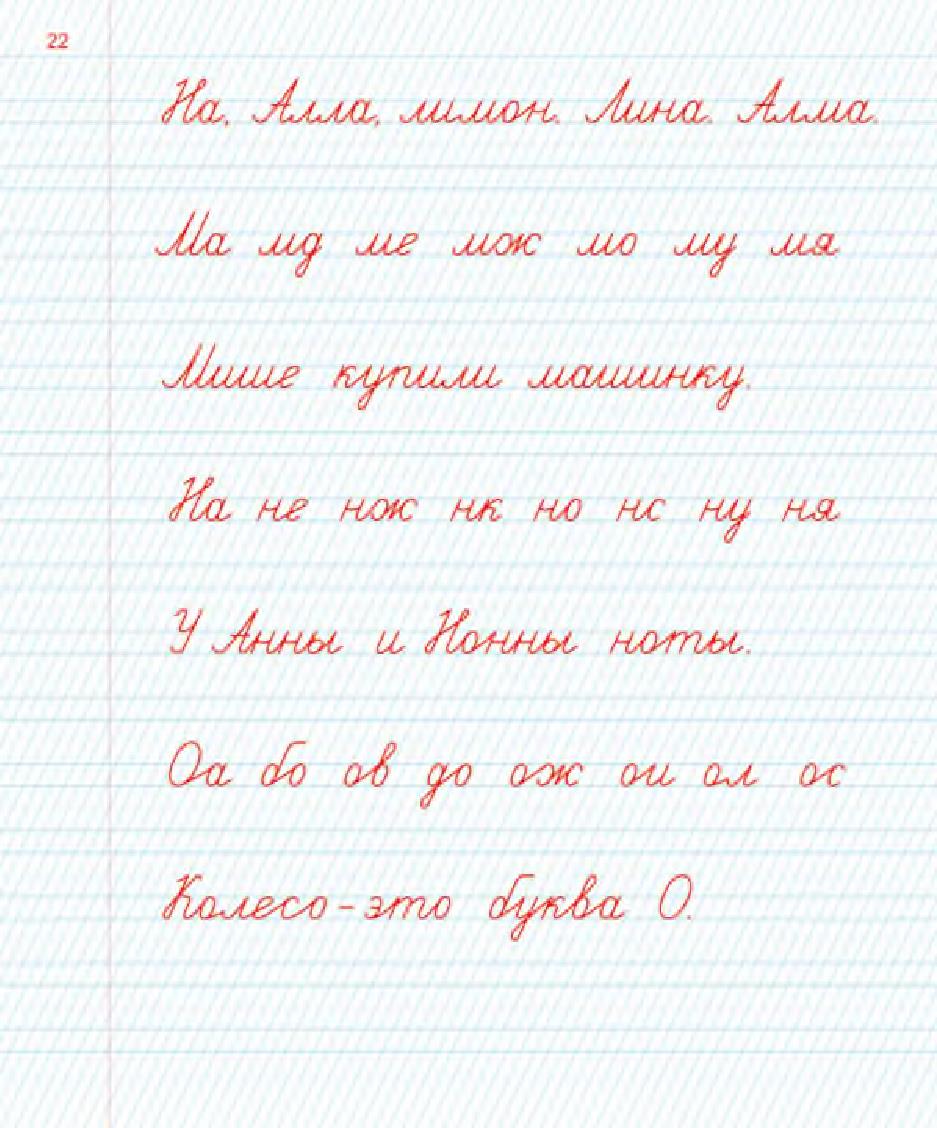 22
На, Алла, лимон. Лина. Алма.
Ма мд ме мж мо му мя
Мише купили машинку.
На не нж нк но нс ну ня
У Анны и Нонны ноты.
Оа бо ов до ож ои ол ос
Колесо-это буква О.